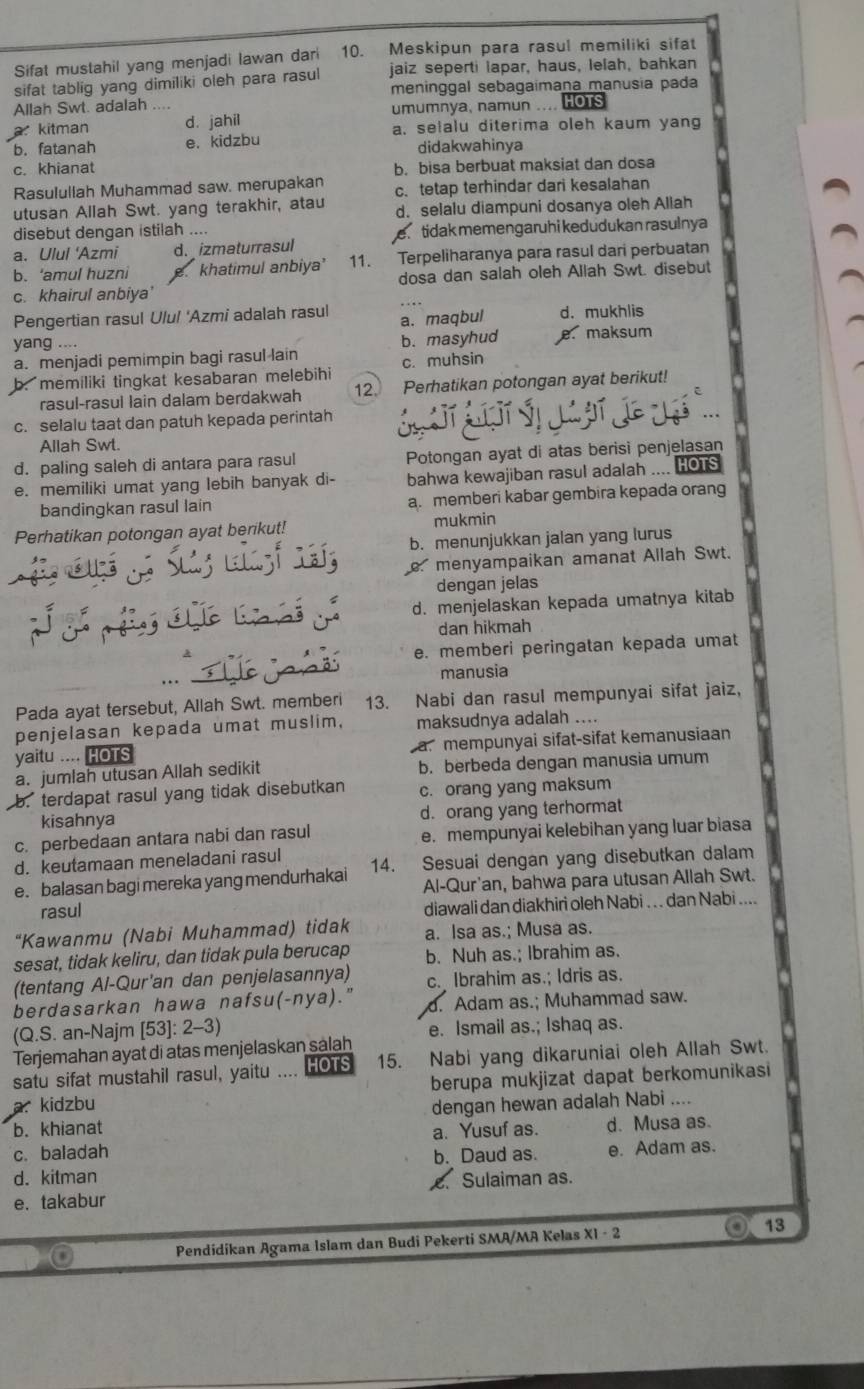 Sifat mustahil yang menjadi lawan dari
sifat tablig yang dimiliki oleh para rasul
Allah Swt. adalah ....
a. kitman d. jahil
b. fatanah e. kidzbu
c. khianat
Rasulullah Muhammad saw. merupakan
utusan Allah Swt. yang terakhir, atau
disebut dengan istilah ....
a. Ulul ‘Azmi d. izmaturrasul
b. ‘amul huzni e. khatimul anbiya’
c. khairul anbiya’
Pengertian rasul Ulul ‘Azmi adalah rasul
yang ....
a. menjadi pemimpin bagi rasul lain
b. memiliki tingkat kesabaran melebihi
rasul-rasul lain dalam berdakwah
c. selalu taat dan patuh kepada perintah
Allah Swt.
d. paling saleh di antara para rasul
e. memiliki umat yang lebih banyak di-
bandingkan rasul lain
Perhatikan potongan ayat berikut!
وَلَقَدْ أَرْسَلْنَا رُسُلًا مِّن قَبْلِكَ مِنْهُم
مَّن قَصَصْنَا عَلَيْكَ وَمِنْهُم مَّن لَّمْ
نَقْصُصْ عَلَيْكَ ۗ ...
Pada ayat tersebut, Allah Swt. memberi
penjelasan kepada umat muslim,
yaitu .... HOTS
a. jumlah utusan Allah sedikit
b. terdapat rasul yang tidak disebutkan
kisahnya
c. perbedaan antara nabi dan rasul
d. keutamaan meneladani rasul
e. balasan bagi mereka yang mendurhakai
rasul
“Kawanmu (Nabi Muhammad) tidak
sesat, tidak keliru, dan tidak pula berucap
(tentang Al-Qur'an dan penjelasannya)
berdasarkan hawa nafsu(-nya).”
(Q.S. an-Najm [53]: 2–3)
Terjemahan ayat di atas menjelaskan salah
satu sifat mustahil rasul, yaitu .... HOTS
a. kidzbu
b. khianat
c. baladah
d. kitman
e. takabur
10. Meskipun para rasul memiliki sifat
jaiz seperti lapar, haus, lelah, bahkan
meninggal sebagaimana manusia pada
umumnya, namun .... HOTS
a. selalu diterima oleh kaum yang
didakwahinya
b. bisa berbuat maksiat dan dosa
c. tetap terhindar dari kesalahan
d. selalu diampuni dosanya oleh Allah
e. tidak memengaruhi kedudukan rasulnya
11. Terpeliharanya para rasul dari perbuatan
dosa dan salah oleh Allah Swt. disebut
....
a. maqbul d. mukhlis
b. masyhud e. maksum
c. muhsin
12. Perhatikan potongan ayat berikut!
... فَهَلْ عَلَى الرُّسُلِ إِلَّا الْبَلَاغُ الْمُبِينُ
Potongan ayat di atas berisi penjelasan
bahwa kewajiban rasul adalah .... HOTS
a. memberi kabar gembira kepada orang
mukmin
b. menunjukkan jalan yang lurus
c. menyampaikan amanat Allah Swt.
dengan jelas
d. menjelaskan kepada umatnya kitab
dan hikmah
e. memberi peringatan kepada umat
manusia
13. Nabi dan rasul mempunyai sifat jaiz,
maksudnya adalah ....
a. mempunyai sifat-sifat kemanusiaan
b. berbeda dengan manusia umum
c. orang yang maksum
d. orang yang terhormat
e. mempunyai kelebihan yang luar biasa
14. Sesuai dengan yang disebutkan dalam
Al-Qur'an, bahwa para utusan Allah Swt.
diawali dan diakhiri oleh Nabi ... dan Nabi ....
a. Isa as.; Musa as.
b. Nuh as.; Ibrahim as.
c. Ibrahim as.; Idris as.
d. Adam as.; Muhammad saw.
e. Ismail as.; Ishaq as.
15. Nabi yang dikaruniai oleh Allah Swt.
berupa mukjizat dapat berkomunikasi
dengan hewan adalah Nabi ....
a. Yusuf as. d. Musa as.
b. Daud as. e. Adam as.
c. Sulaiman as.
Pendidikan Agama Islam dan Budi Pekerti SMA/MA Kelas XI - 2
13